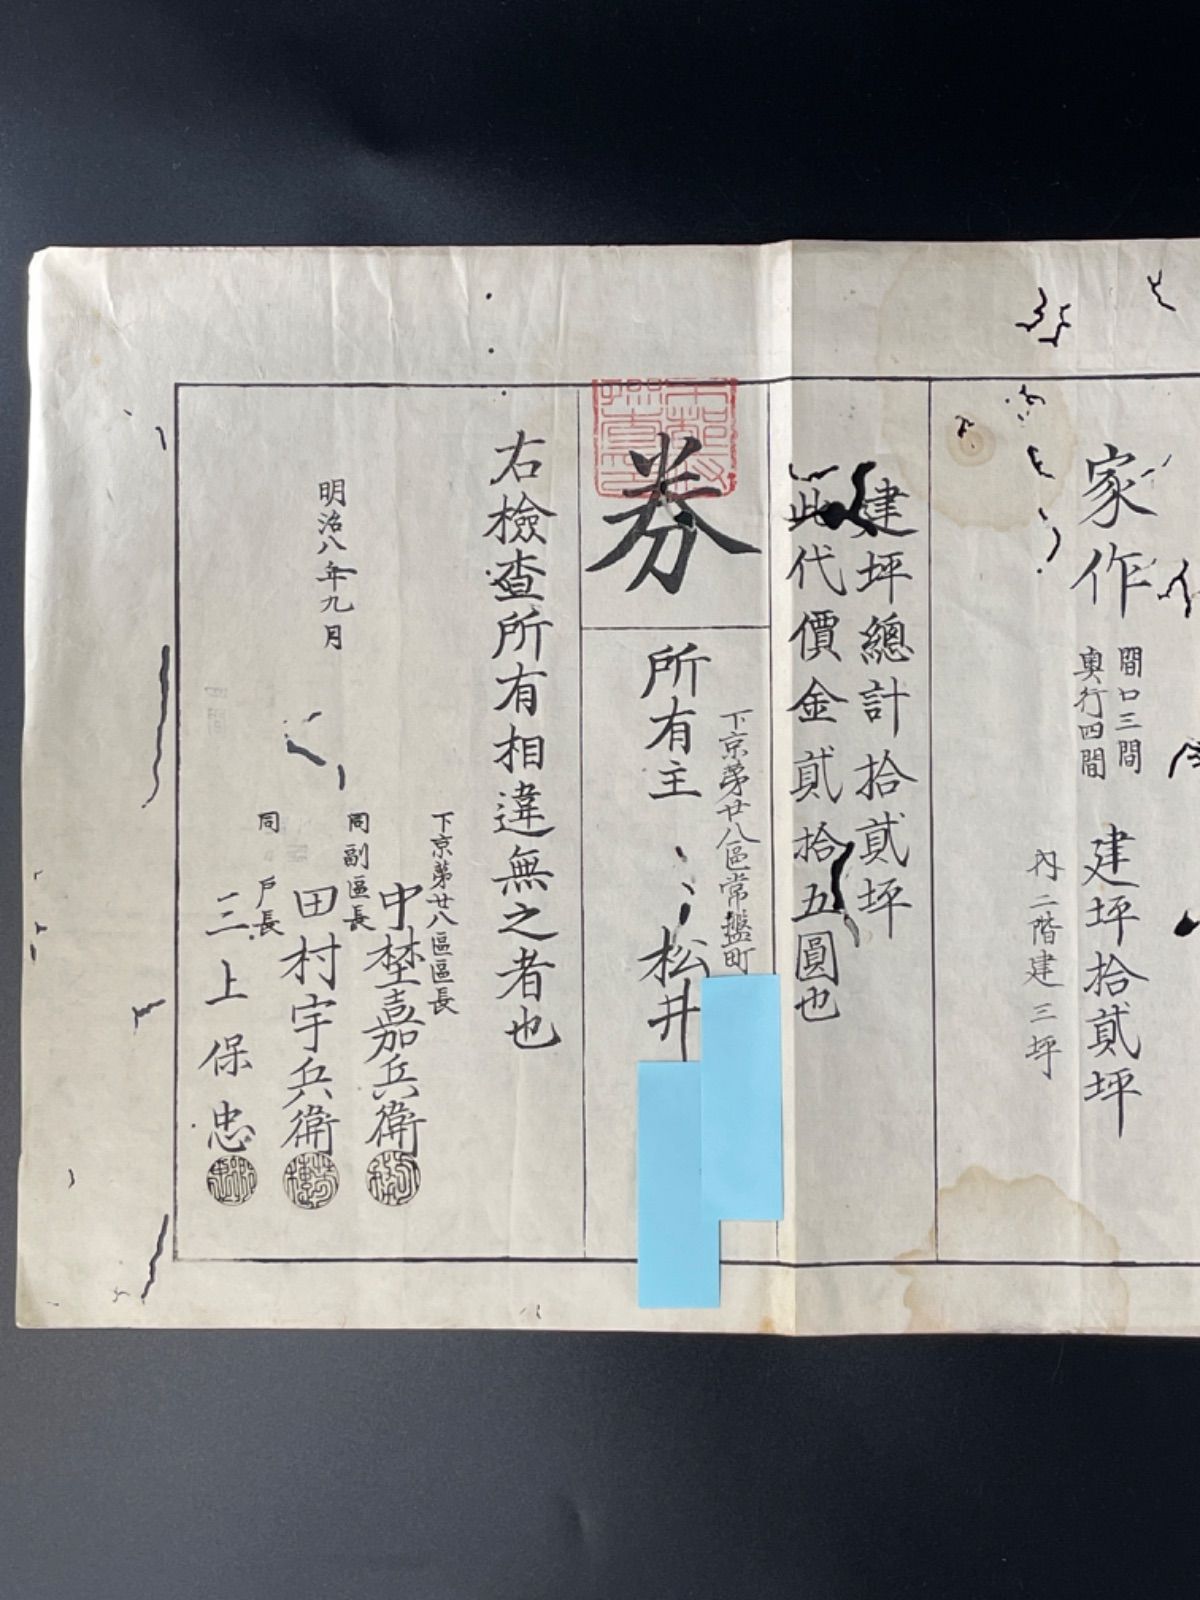 家作
間口三間
奥行四間
建坪拾貳坪
内二階建三坪
建坪總計拾貳坪
此代價金貳拾五圓也
券
下京第廿八區常盤町
所有主
松井
右檢查所有相違無之者也
明治八年九月
下京第廿八區區長
中埜嘉兵衛
同副區長
田村宇兵衛
同戸長
三上保忠